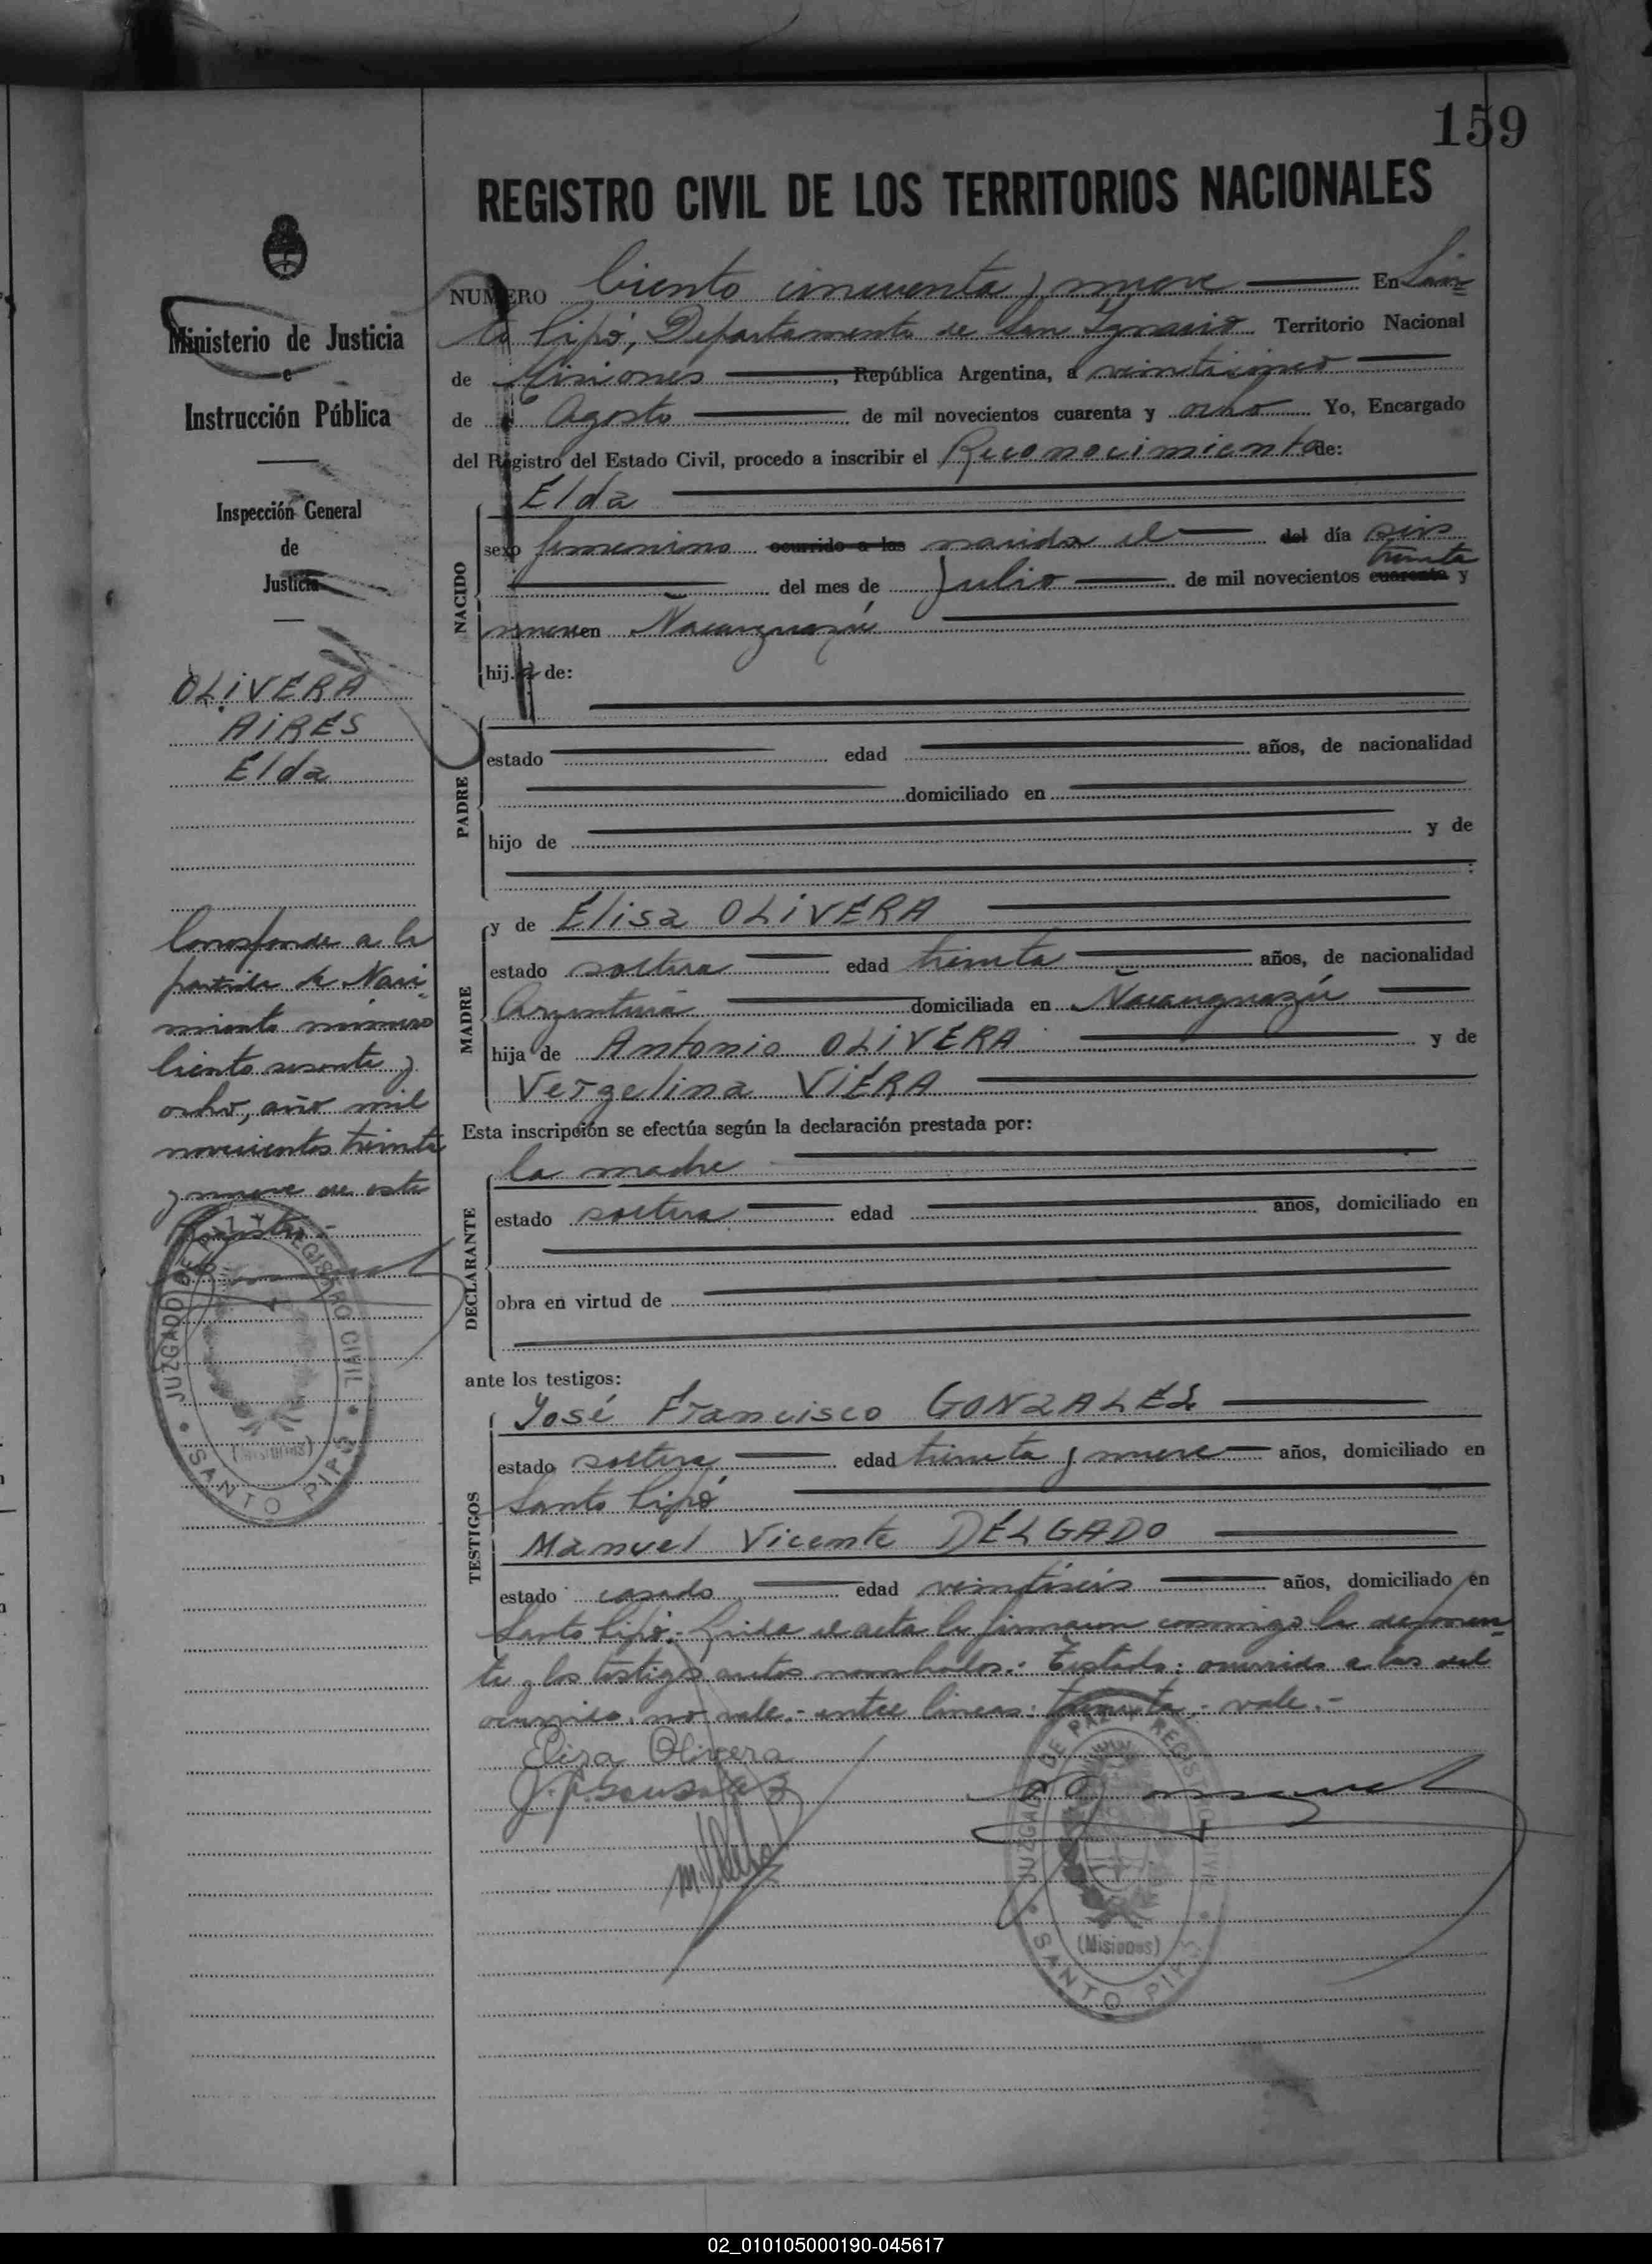 159
REGISTRO CIVIL DE LOS TERRITORIOS NACIONALES
NUMERO Ciento cincuenta y nueve En San=
to Pipó, Departamento de San Ygnacio Territorio Nacional
de Misiones, República Argentina, a veinticinco
de Agosto de mil novecientos cuarenta y ocho Yo, Encargado
del Registro del Estado Civil, procedo a inscribir el Reconocimiento de:
NACIDO
Elda
sexo femenino ocurrido a las nacida el del día seis
treinta
del mes de Julio de mil novecientos cuarenta y
nueve en Ñacanguazú
hija de:
PADRE
estado edad años, de nacionalidad
domiciliado en
hijo de y de
MADRE
y de Elisa OLiVERA
estado soltera edad treinta años, de nacionalidad
Argentina domiciliada en Ñacanguazú
hija de Antonio OLiVERA y de
Vergelina ViERA
Esta inscripción se efectúa según la declaración prestada por:
DECLARANTE
la madre
estado soltera edad años, domiciliado en
obra en virtud de
ante los testigos:
TESTIGOS
José Francisco GONZALES
estado soltero edad treinta y nueve años, domiciliado en
Santo Pipó
Manuel Vicente DELGADO
estado casado edad veintiseis años, domiciliado en
Santo Pipó.- Leida el acta la firmaron conmigo la deponen=
te y los testigos antes nombrados.- Testado: ocurrido a las del
no vale.- entre lineas: treinta.- vale.-
Eliza Olivera
JUZGADO DE PAZ Y REGISTRO CIVIL
(Misiones)
SANTO PIPÓ
Ministerio de Justicia
e
Instrucción Pública
Inspección General
de
Justicia
OLiVERA
AiRES
Elda
Corresponde a la
partida de Naci=
miento número
Ciento sesenta y
ocho, año mil
novecientos treinta
y nueve de este
Registro.-
JUZGADO DE PAZ Y REGISTRO CIVIL
(Misiones)
SANTO PIPÓ
02_010105000190-045617